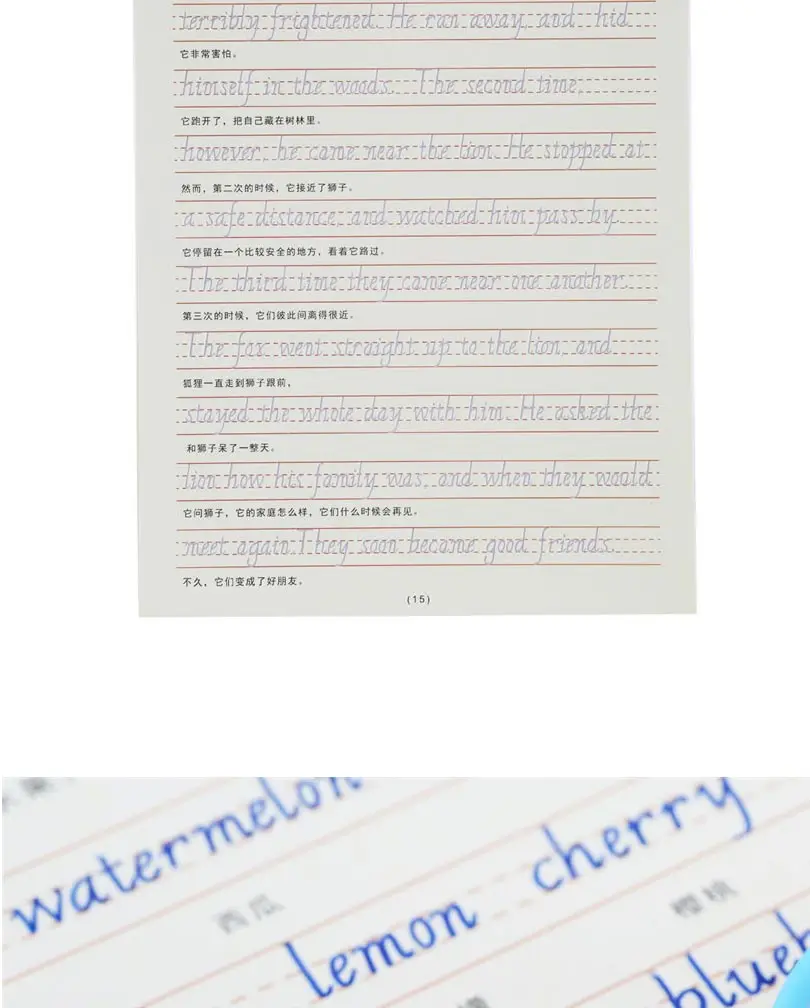 terribly frightened. He ran away, and hid
它非常害怕。
himself in the woods. The second time,
它跑开了，把自己藏在树林里。
however, he came near the lion. He stopped at
然而，第二次的时候，它接近了狮子。
a safe distance, and watched him pass by.
它停留在一个比较安全的地方，看着它路过。
The third time they came near one another.
第三次的时候，它们彼此间离得很近。
The fox went straight up to the lion, and
狐狸一直走到狮子跟前，
stayed the whole day with him. He asked the
和狮子呆了一整天。
lion how his family was, and when they would
它问狮子，它的家庭怎么样，它们什么时候会再见。
meet again. They soon became good friends.
不久，它们变成了好朋友。
(15)
watermelon
cherry
西瓜
樱桃
lemon
blueb